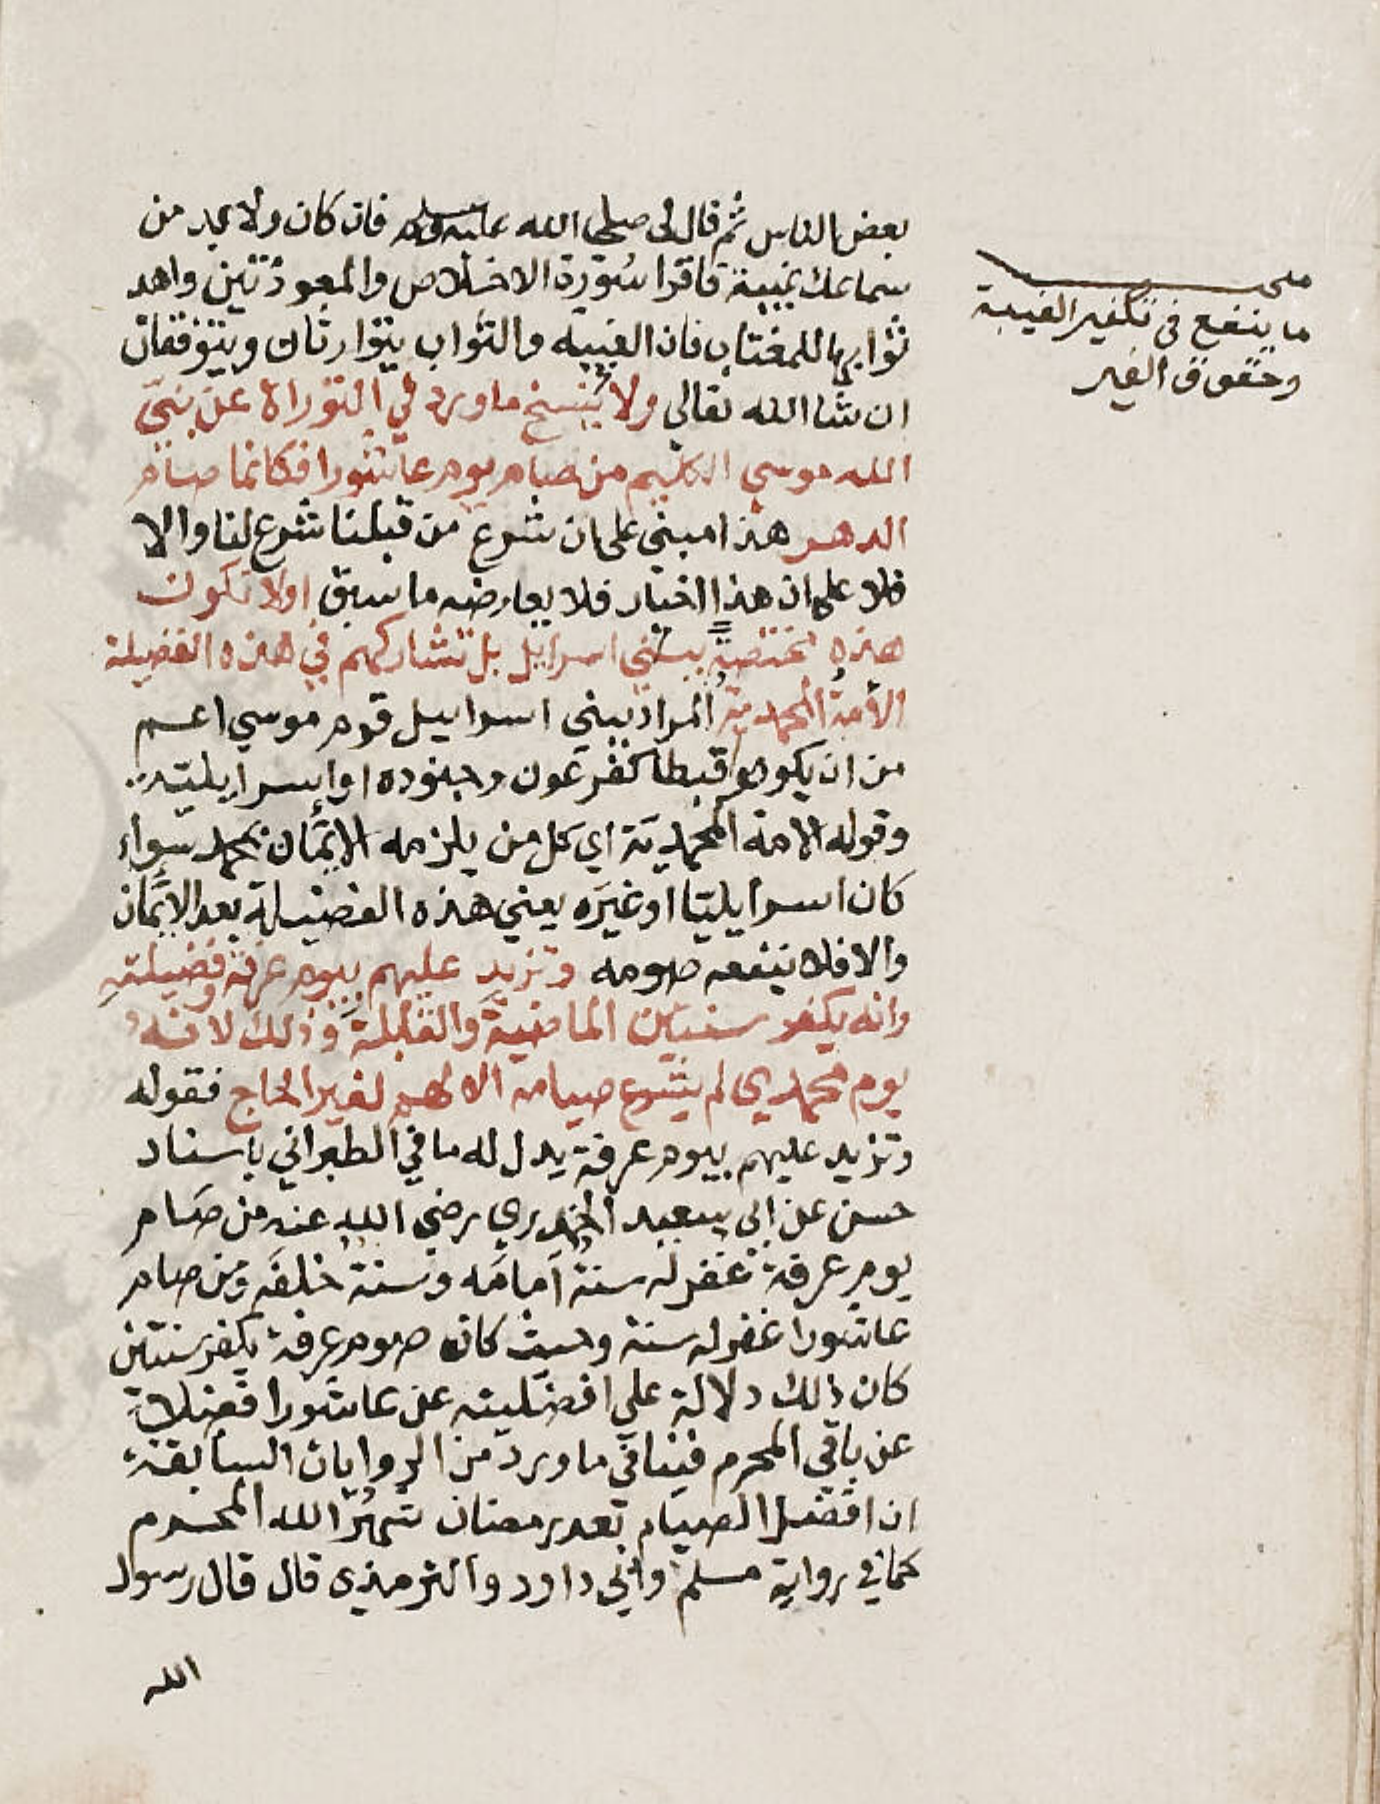 بعض الناس ثم قال لى صلى الله عليه وسلم فان كان ولا بد من
سماعك غيبة فاقرا سورة الاخلاص والمعوذتين واهد
ثوابها للمغتاب فان الغيبة والثواب يتوارثان ويتوفقان
ان شا الله تعالى ولا ينسخ ما ورد في التوراة عن نبيّ
الله موسي الكليم من صام يوم عاشورا فكانما صام
الدهر هذا مبني على ان شرع من قبلنا شرع لنا والا
فلا على ان هذا اخبار فلا يعارضه ما سبق اولا تكون
هذه مختصة ببني اسرايل بل تشاركهم في هذه الفضيلة
الأمة المحمدية المراد ببني اسراييل قوم موسي اعم
من ان يكو هو قبطا كفرعون وجنوده او إسرايلية
وقوله الامة المحمدية اي كل من يلزمه الايمان بمحمد سواء
كان اسرايليّا او غيره يعني هذه الفضيلة بعد الايمان
والا فلا ينفعه صومه وتزيد عليهم بيوم عرفة وفضيلته
وانه يكفر سنتين الماضية والقابلة وذلك لانه
يوم محمدي لم يشرع صيامه الا لهم لغير الحاج فقوله
وتزيد عليهم بيوم عرفة يدل له ما في الطبراني باسناد
حسن عن ابى سعيد الخدري رضي الله عنه من صام
يوم عرفة غفر له سنة أمامه وسنة خلفه ومن صام
عاشورا غفر له سنة وحيث كان صوم عرفة يكفر سنتين
كان ذلك دلالة علي افضليته عن عاشورا فضلا
عن باقي المحرم فينافي ما ورد من الروايات السابقة
ان افضل الصيام بعد رمضان شهر الله المحرم
كما في رواية مسلم وابي داود والترمذى قال قال رسول
الله
ما ينفع فى تكفير الغيبة
وحقوق الغير